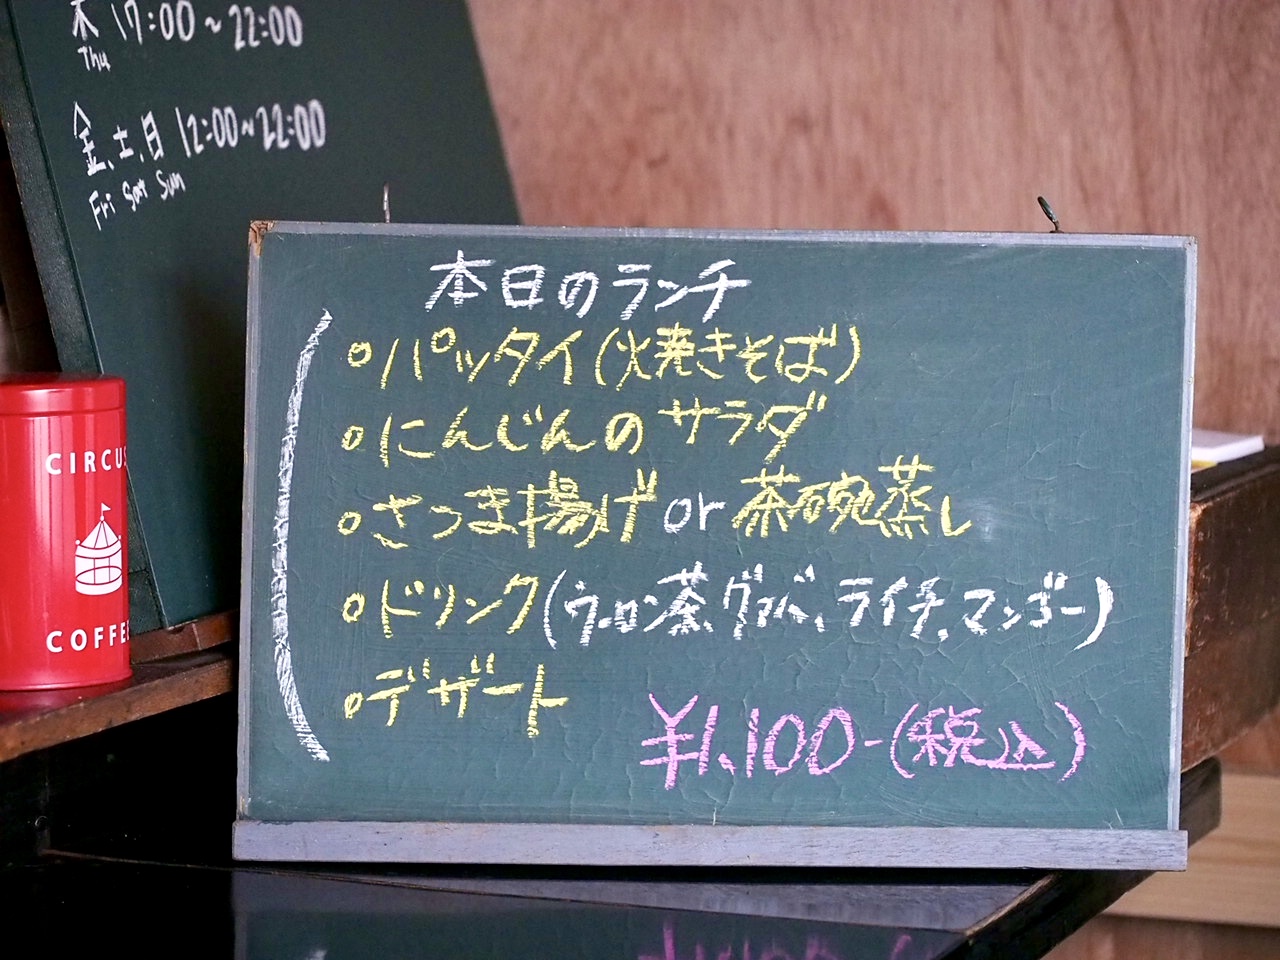 木 17:00~22:00
Thu
金、土、日 12:00~22:00
Fri Sat Sun
CIRCUS
COFFEE
本日のランチ
○パッタイ(焼きそば)
○にんじんのサラダ
○さつま揚げ or 茶碗蒸し
○ドリンク(ウーロン茶、グァバ、ライチ、マンゴー)
○デザート
¥1,100-(税込)